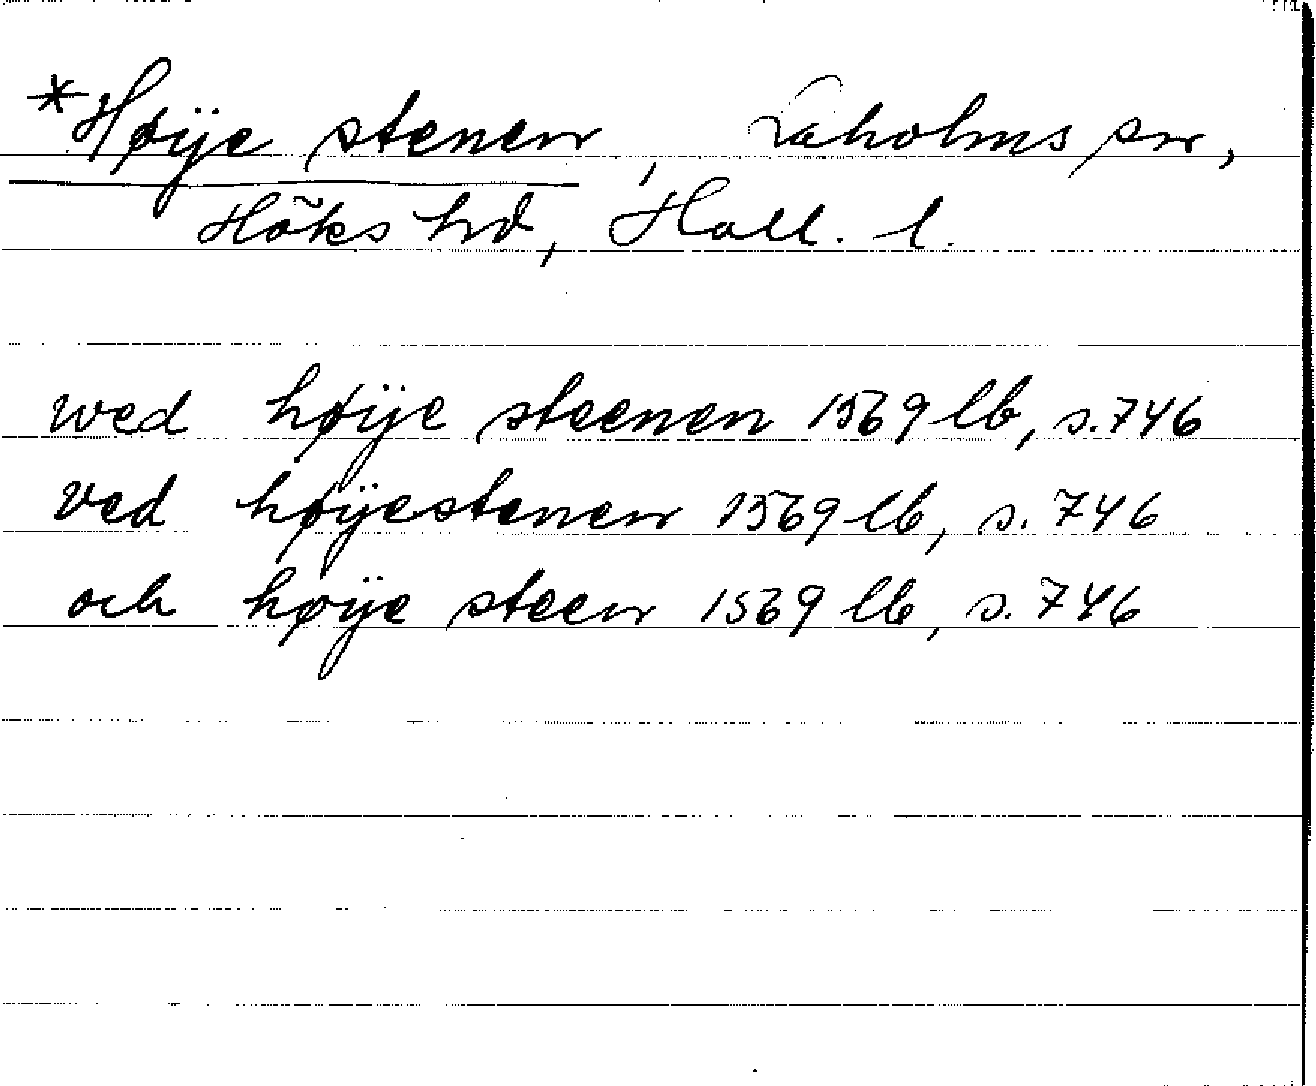 *Høÿe stenen, Laholms sn,
Höks hd, Hall. l.
wed høÿe steenen 1569 lb, s. 746
ved høÿestenen 1569 lb, s. 746
och høÿe steen 1569 lb, s. 746